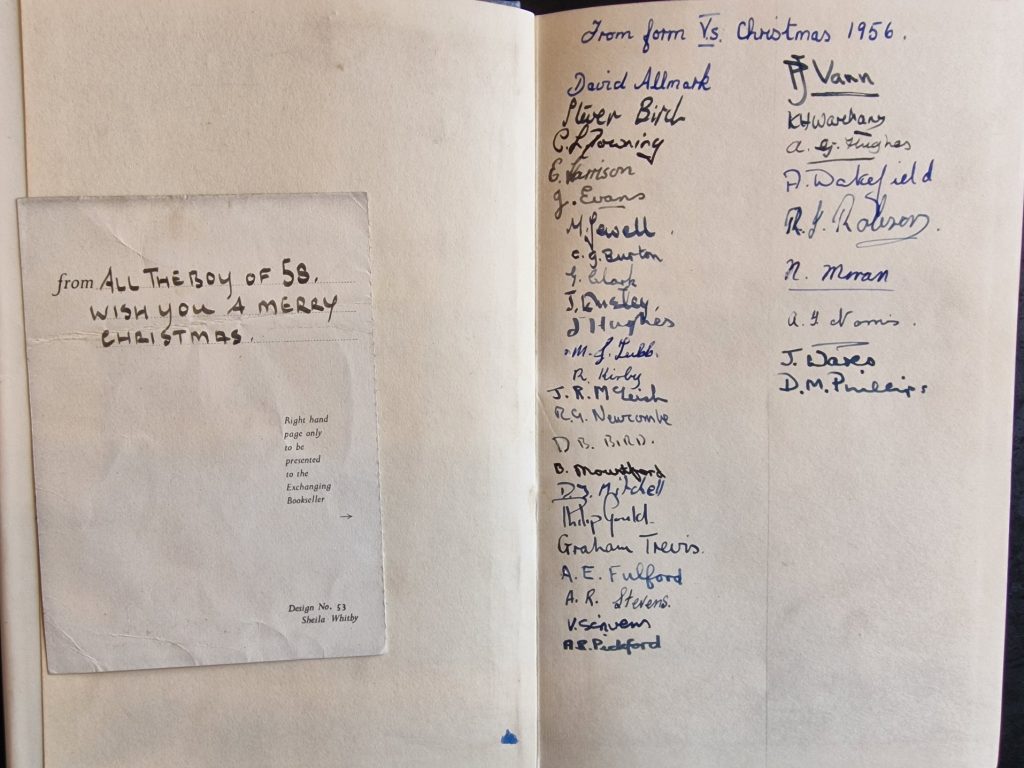 from ALL THE BOY OF 5S.
WISH YOU A MERRY
CHRISTMAS.
Right hand
page only
to be
presented
to the
Exchanging
Bookseller
→
Design No. 53
Sheila Whitby
From form Vs. Christmas 1956.
David Allmark
Bird
C. L. Downing
E. Harrison
J. Evans
M. Jewell.
C. J. Burton
G. Clark
J. Ensley.
J Hughes
M. J. Tubb.
R. Kirby
J. R. McLeish
R. G. Newcombe
D B. BIRD.
B. Mountford
D. J. Mitchell
Philip Gould.
Graham Trevis.
A. E. Fulford
A. R. Stevens.
V. Scriven
A. S. Pickford
PJ Vann
K H Wareham
A. G. Hughes
A. Wakefield
R. J. Robson.
N. Moran
A. J Norris.
J. Wares
D. M. Phillips